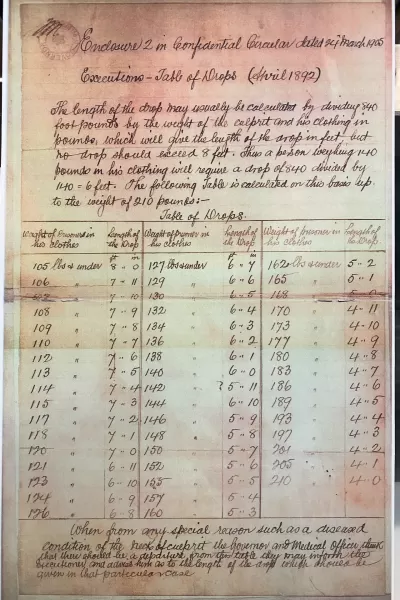 Enclosure 2 in Confidential Circular dated 24 March 1905
Executions – Table of Drops (April 1892)
The length of the drop may usually be calculated by dividing 840
foot-pounds by the weight of the culprit and his clothing in
pounds, which will give the length of the drop in feet but
no drop should exceed 8 feet. Thus a person weighing 140
pounds in his clothing will require a drop of 840 divided by
140 = 6 feet. The following Table is calculated on this basis up
to the weight of 210 pounds:-
Table of Drops.
Weight of Prisoner in his clothes Length of the Drop Weight of prisoner in his clothes Length of the Drop Weight of prisoner in his clothes Length of the Drop
ft in ft in
105 lbs & under 8 " 0 127 lbs & under 6 " 7 162 lbs & under 5 - 2
106 " 7 " 11 129 " 6 " 6 165 " 5 " 1
" 7 " 10 130 " 6 " 5 168 "
108 " 7 " 9 132 " 6 " 4 170 " 4 - 11
109 " 7 " 8 134 " 6 " 3 173 " 4 - 10
110 " 7 " 7 136 " 6 " 2 177 " 4 " 9
112 " 7 " 6 138 " 6 " 1 180 " 4 " 8
113 " 7 " 5 140 " 6 " 0 183 " 4 " 7
114 " 7 " 4 142 " 5 " 11 186 " 4 " 6
115 " 7 " 3 144 " 5 " 10 189 " 4 " 5
117 " 7 " 2 146 " 5 " 9 193 " 4 " 4
118 " 7 " 1 148 " 5 " 8 197 " 4 " 3
120 " 7 " 0 150 " 5 " 7 201 " 4 " 2
121 " 6 " 11 152 " 5 " 6 205 " 4 - 1
123 " 6 - 10 155 " 5 " 5 210 " 4 - 0
124 " 6 - 9 157 " 5 " 4
126 " 6 - 8 160 " 5 - 3
When from any special reason such as a diseased
condition of the neck of culprit the Governor and Medical Officer think
that there should be a departure from the table they may inform the
executioner, and advise him as to the length of the drop which should be
given in that particular case